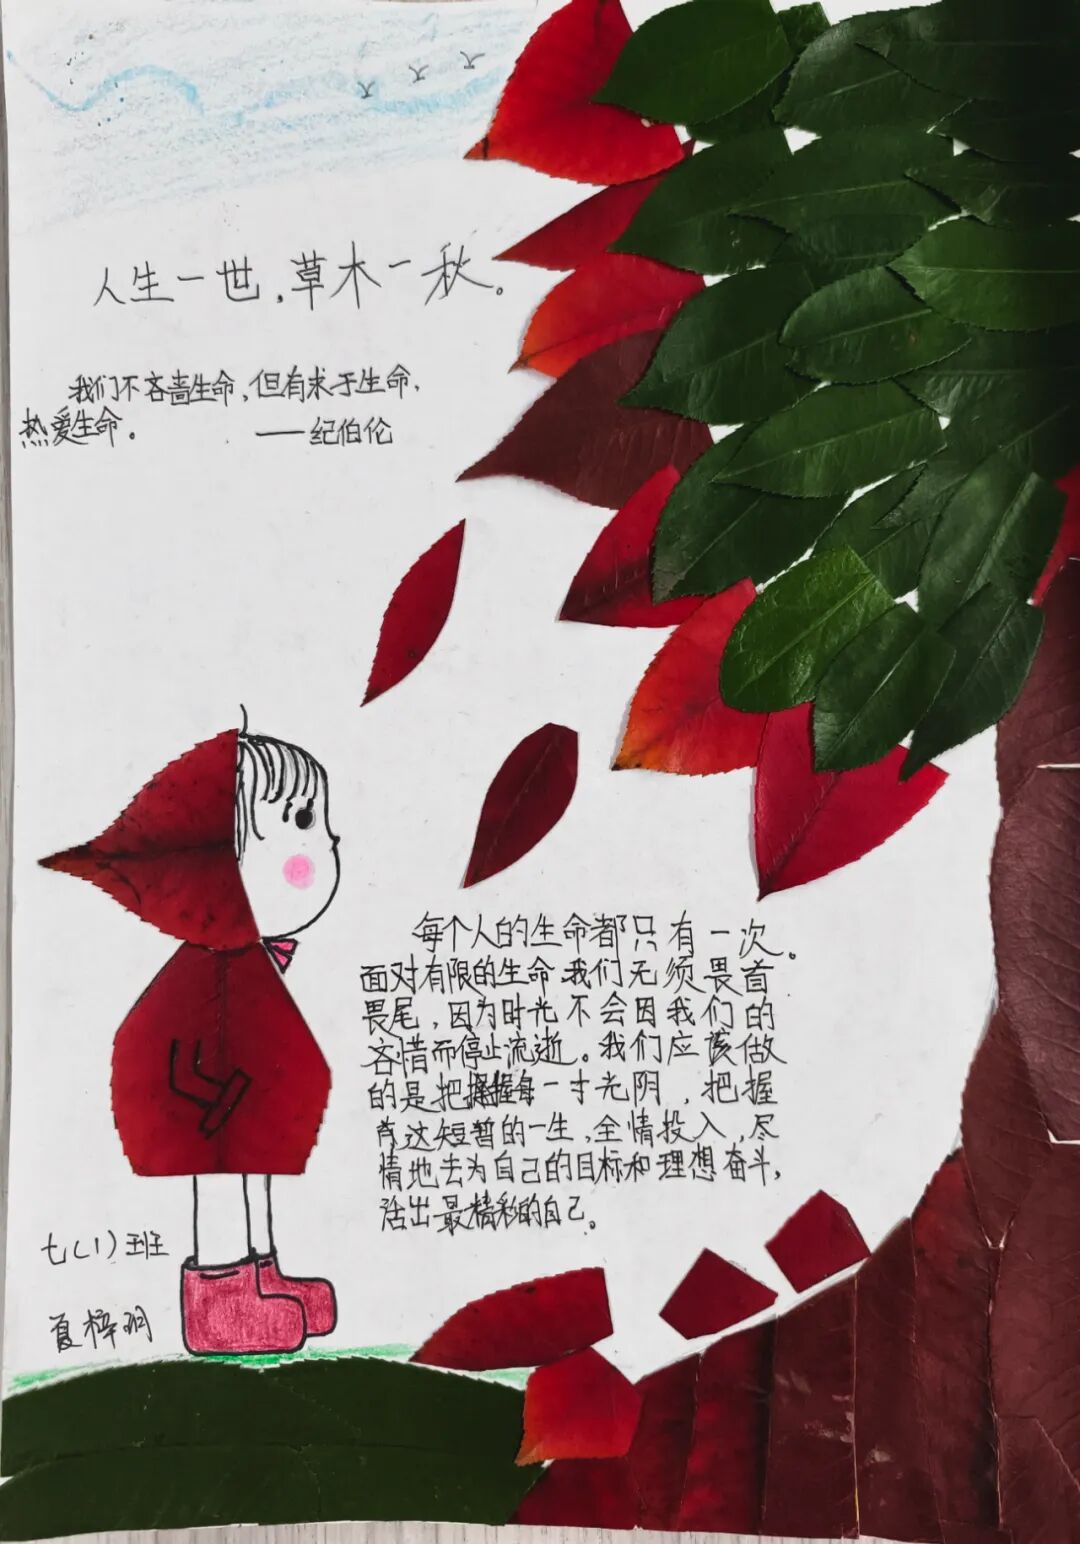 人生一世，草木一秋。
我们不吝啬生命，但有求于生命，
热爱生命。 ——纪伯伦
每个人的生命都只有一次。
面对有限的生命 我们无须畏首
畏尾，因为时光不会因我们的
吝惜而停止流逝。我们应该做
的是把握每一寸光阴，把握
这短暂的一生，全情投入，尽
情地去为自己的目标和理想奋斗，
活出最精彩的自己。
七（1）班
夏梓玥